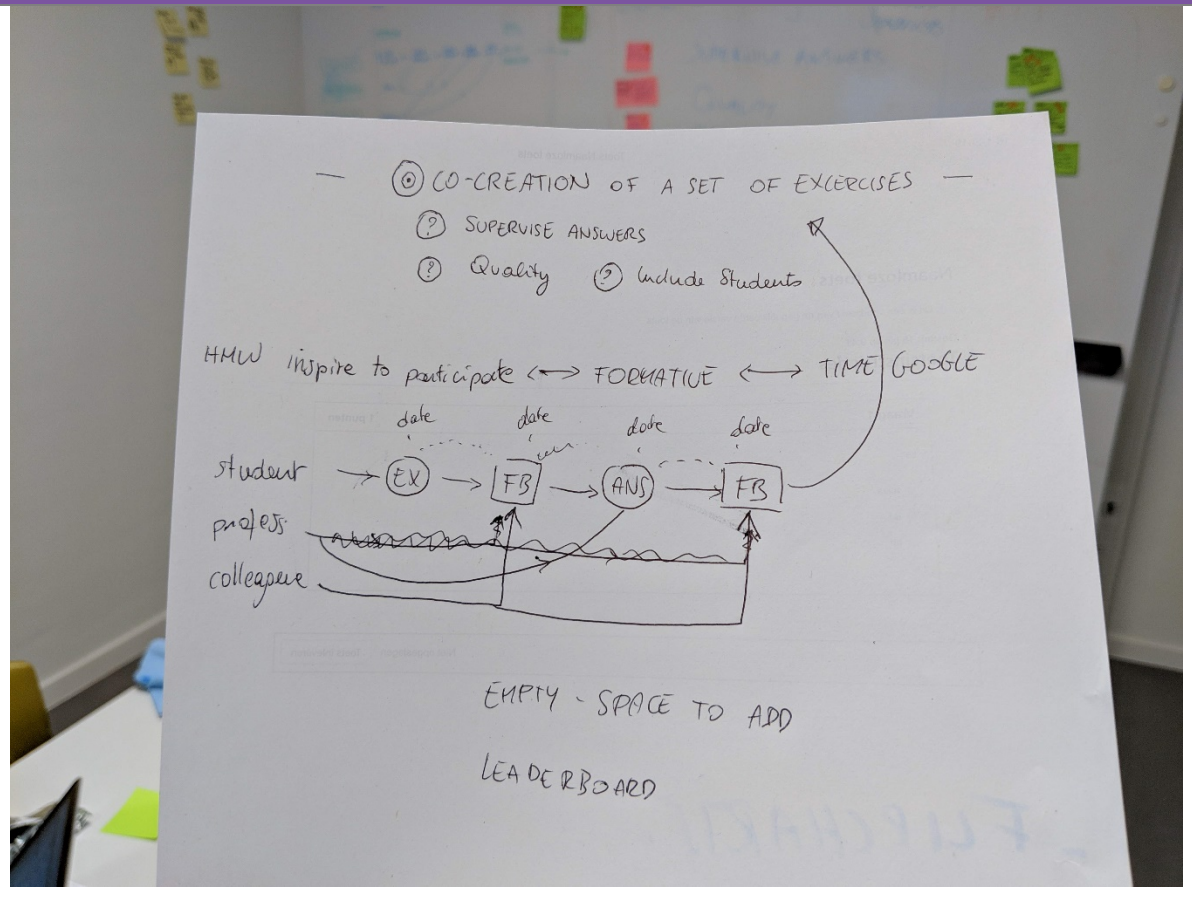 CO-CREATION OF A SET OF EXCERCISES
? SUPERVISE ANSWERS
? Quality ? Include Students
HMW inspire to participate <-> FORMATIVE <-> TIME GOOGLE
date date date date
student EX FB ANS FB
profess.
colleague
EMPTY - SPACE TO ADD
LEADERBOARD